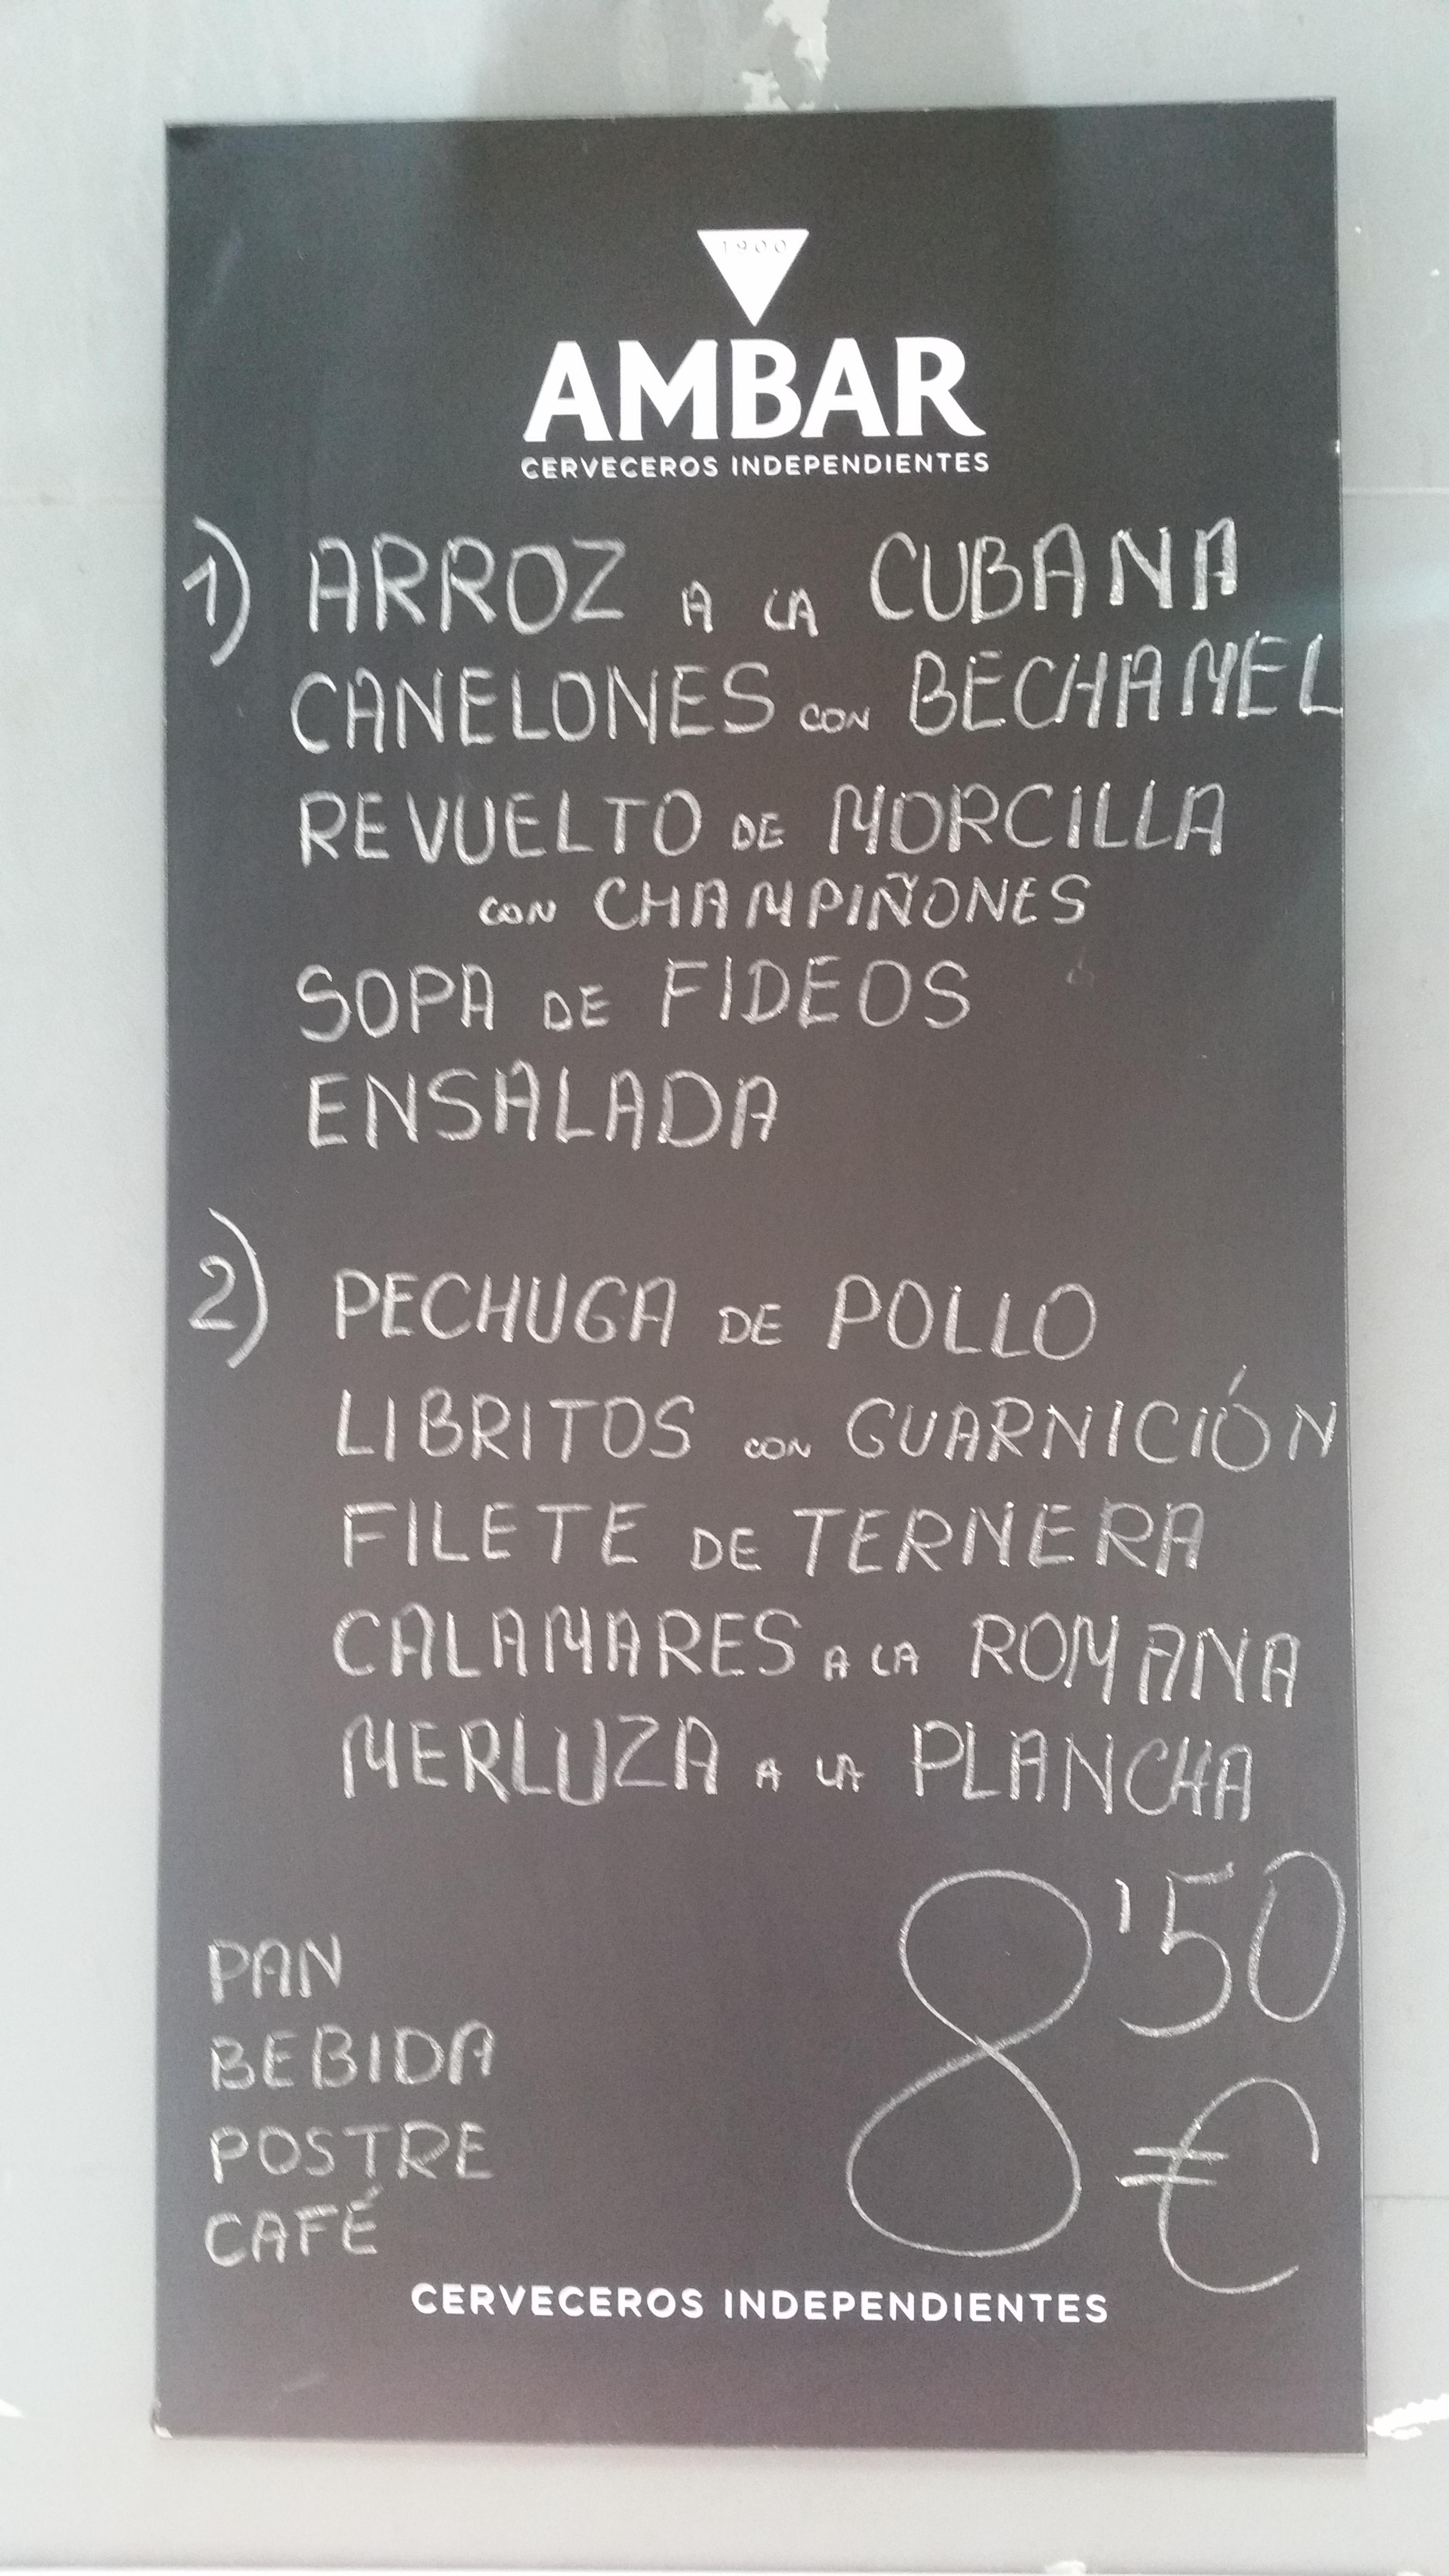 1900
AMBAR
CERVECEROS INDEPENDIENTES
1) ARROZ A LA CUBANA
CANELONES CON BECHAMEL
REVUELTO DE MORCILLA
CON CHAMPIÑONES
SOPA DE FIDEOS
ENSALADA
2) PECHUGA DE POLLO
LIBRITOS CON GUARNICIÓN
FILETE DE TERNERA
CALAMARES A LA ROMANA
MERLUZA A LA PLANCHA
8'50
€
PAN
BEBIDA
POSTRE
CAFÉ
CERVECEROS INDEPENDIENTES